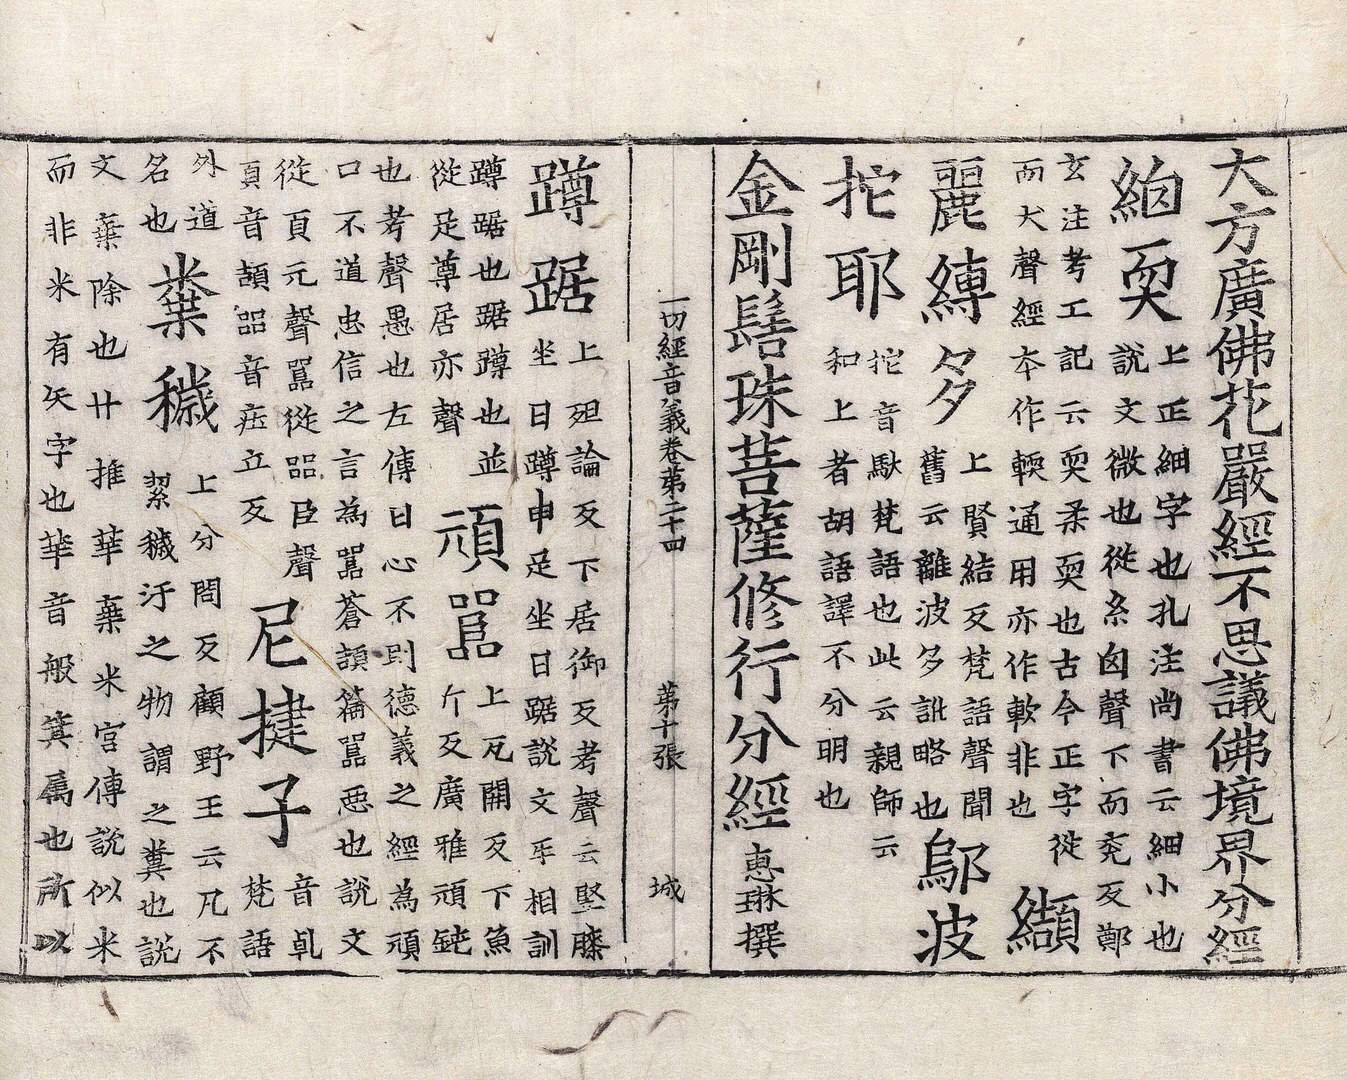 大方廣佛花嚴經不思議佛境界分經
𥿳耎上正細字也孔注尚書云細小也
說文微也從糸囟聲下而兖反鄭
玄注考工記云耎柔耎也古今正字從
而犬聲經本作輭通用亦作軟非也纈
麗縛多上賢結反梵語聲聞
舊云離波多訛略也鄔波
拕耶拕音馱梵語也此云親師云
和上者胡語譯不分明也
金剛髻珠菩薩修行分經 惠琳撰
一切經音義卷第二十四 第十張 城
蹲踞上徂論反下居御反考聲云堅膝
坐曰蹲申足坐曰踞說文互相訓
蹲踞也踞蹲也並
從足尊居亦聲頑嚚上瓦關反下魚
斤反廣雅頑鈍
也考聲愚也左傳曰心不則德義之經為頑
口不道忠信之言為嚚蒼頡篇嚚惡也說文
從頁元聲嚚從㗊臣聲
頁音頡㗊音疘立反尼揵子音乹
梵語
外道
名也糞穢上分問反顧野王云凡不
絜穢汙之物謂之糞也說
文棄除也廾推華棄米官傳說似米
而非米有矢字也華音般箕属也所以